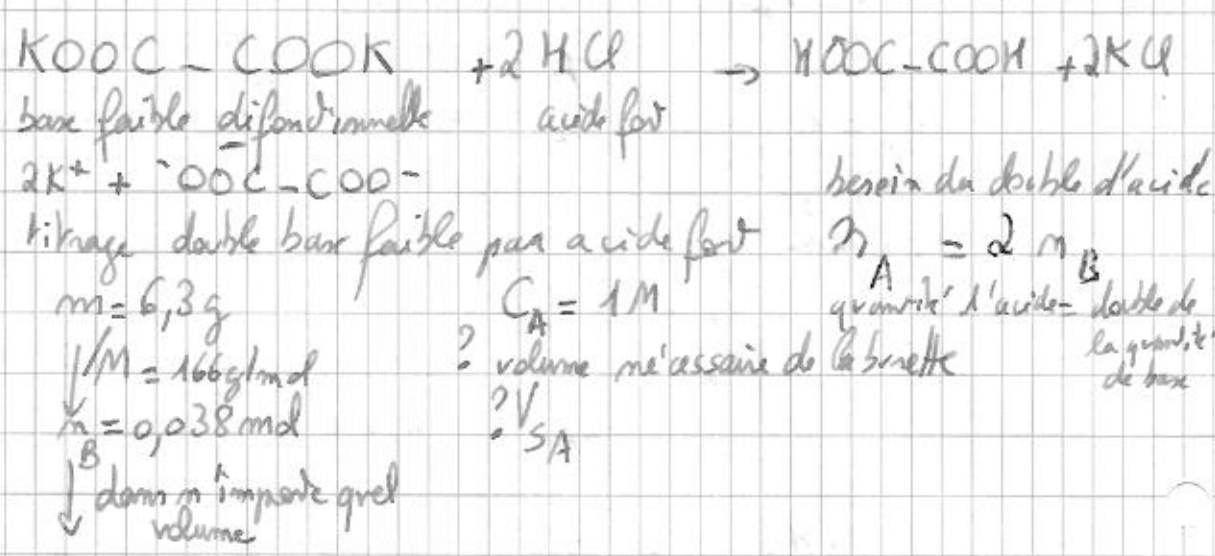 KOOC - COOK + 2 HCl → HOOC-COOH + 2KCl
base faible difonctionnelle acide fort
2K⁺ + ⁻OOC-COO⁻ besoin du double d'acide
titrage double base faible par acide fort n_A = 2 n_B
m = 6,3g C_A = 1M quantité d'acide = double de la quantité de base
↓ /M = 166g/mol ? volume nécessaire de la burette
n_B = 0,038 mol ? V_SA
↓ dans n'importe quel
volume